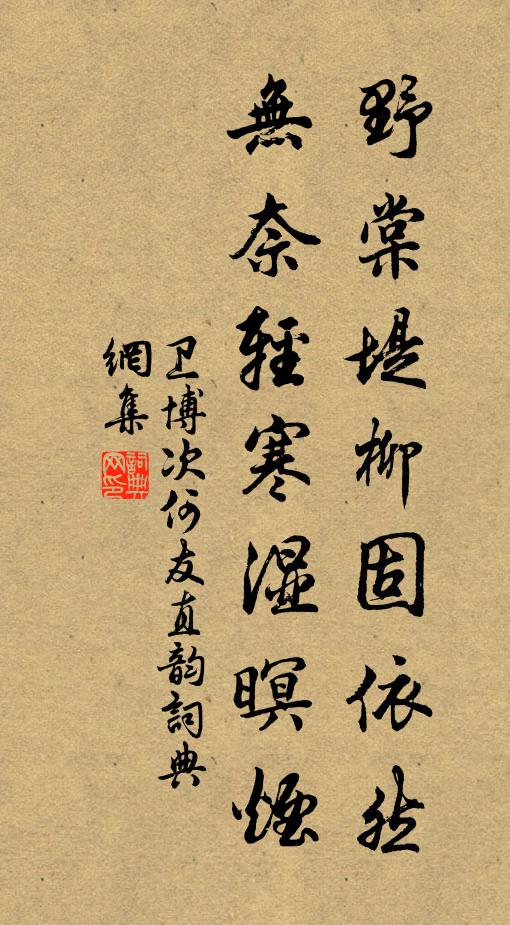 野棠堤柳固依然
無奈輕寒湿暝煙
卫博次何友直韵詞典
網集
詞典
网印